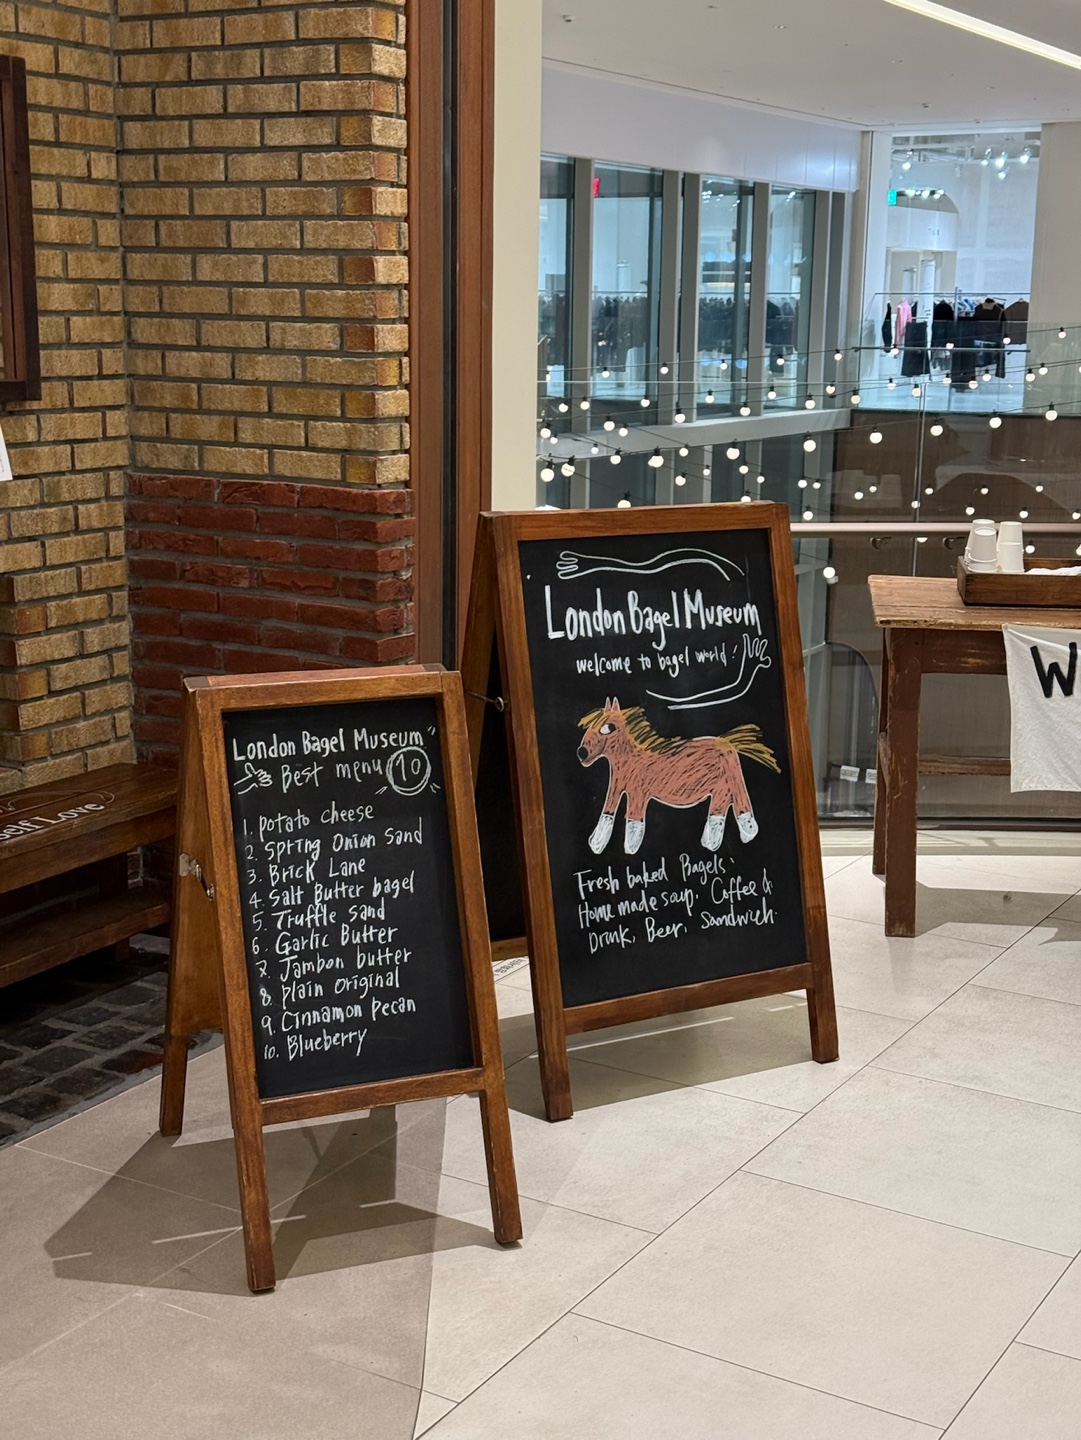 London Bagel Museum
Best menu 10
1. Potato cheese
2. Spring Onion Sand
3. Brick Lane
4. Salt Butter bagel
5. Truffle Sand
6. Garlic Butter
7. Jambon butter
8. Plain original
9. Cinnamon pecan
10. Blueberry
London Bagel Museum
welcome to bagel world!
Fresh baked Bagels,
Home made soup, Coffee &
Drink, Beer, Sandwich.
self Love
W